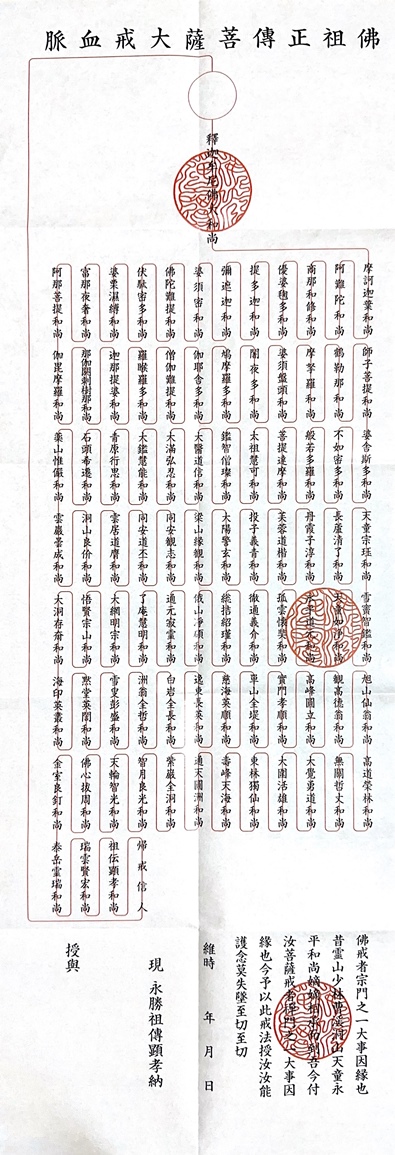 佛祖正傳菩薩大戒血脈
釋迦牟尼佛大和尚
摩訶迦葉和尚
阿難陀和尚
商那和修和尚
優婆毱多和尚
提多迦和尚
彌遮迦和尚
婆須密和尚
佛陀難提和尚
伏駄密多和尚
婆栗濕縛和尚
富那夜奢和尚
阿那菩提和尚
師子菩提和尚
鶴勒那和尚
摩拏羅和尚
婆須盤頭和尚
闍夜多和尚
鳩摩羅多和尚
伽耶舎多和尚
僧伽難提和尚
羅睺羅多和尚
迦那提婆和尚
那伽閼剌樹那和尚
伽毘摩羅和尚
婆舎斯多和尚
不如密多和尚
般若多羅和尚
菩提達磨和尚
太祖慧可和尚
鑑智僧璨和尚
大醫道信和尚
大滿弘忍和尚
大鑑慧能和尚
青原行思和尚
石頭希遷和尚
藥山惟儼和尚
天童宗珏和尚
長蘆清了和尚
丹霞子淳和尚
芙蓉道楷和尚
投子義青和尚
大陽警玄和尚
梁山緣觀和尚
同安觀志和尚
同安道丕和尚
雲居道膺和尚
洞山良价和尚
雲巖曇成和尚
雪竇智鑑和尚
天童如淨和尚
永平道元和尚
孤雲懷奘和尚
徹通義介和尚
総持紹瑾和尚
山碩和尚
通元寂靈和尚
了庵慧明和尚
大綱明宗和尚
悟賢宗山和尚
大洞存奝和尚
旭山仙翁和尚
觀高德翁和尚
高峰圓立和尚
實門孝順和尚
單山全堤和尚
慈海英順和尚
逸東長英和尚
白岩全長和尚
洲翁全哲和尚
雪叟彭盛和尚
黙堂英誾和尚
海印英叢和尚
高道榮林和尚
無關哲丈和尚
大覺勇道和尚
大圍活雄和尚
東林獨仙和尚
壽峰天海和尚
通天圃洲和尚
紫巖全洞和尚
智月良光和尚
天輪智光和尚
佛心拔周和尚
金室良釘和尚
歸戒信人
祖伝顕孝和尚
瑞雲賢宏和尚
泰岳靈瑞和尚
佛戒者宗門之一大事因緣也
昔靈山少林曹溪洞山天童永
平和尚嫡嫡相承而到吾今付
汝菩薩戒者宗門之一大事因
緣也今予以此戒法授汝汝能
護念莫失墜至切至切
維時 年 月 日
現 永勝祖傳顕孝納
授與